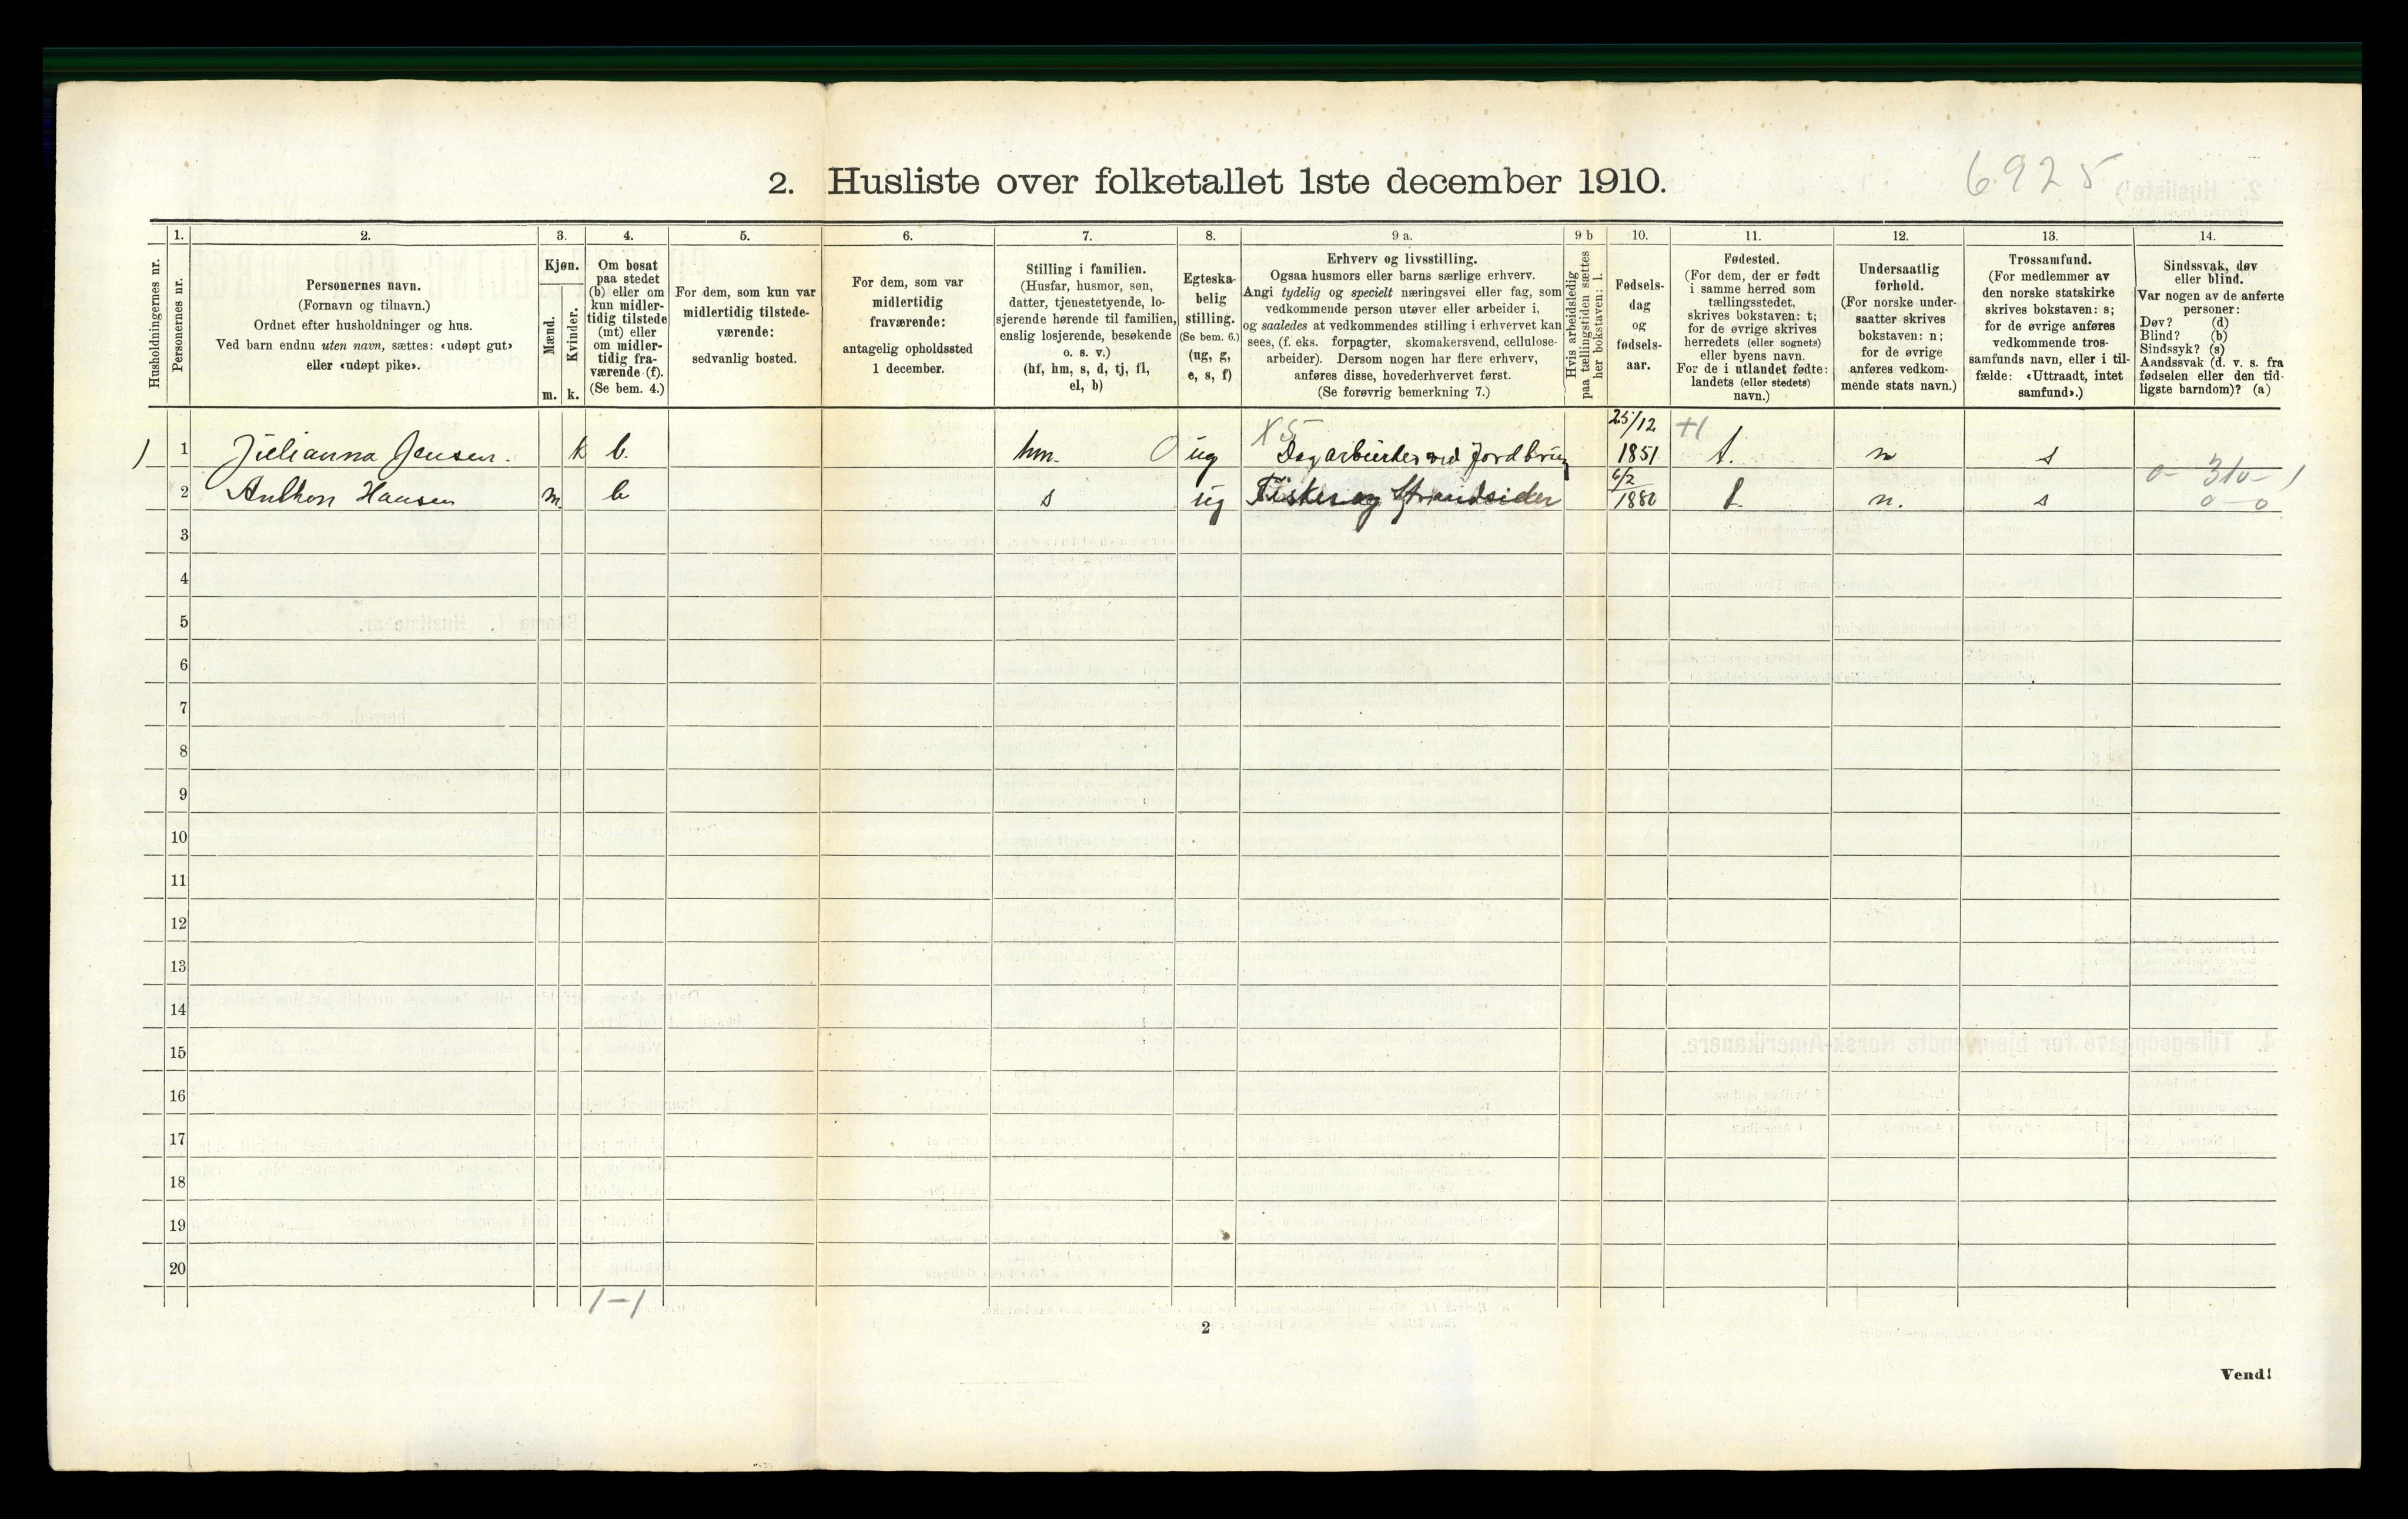 2. Husliste over folketallet 1ste december 1910.
6925
Husholdningernes nr.
1.
Personernes nr.
2.
Personernes navn.
(Fornavn og tilnavn.)
Ordnet efter husholdninger og hus.
Ved barn endnu uten navn, sættes: «udøpt gut»
eller «udøpt pike».
3.
Kjøn.
Mænd.
Kvinder.
m.
k.
4.
Om bosat
paa stedet
(b) eller om
kun midler-
tidig tilstede
(mt) eller
om midler-
tidig fra-
værende (f).
(Se bem. 4.)
5.
For dem, som kun var
midlertidig tilstede-
værende:
sedvanlig bosted.
6.
For dem, som var
midlertidig
fraværende:
antagelig opholdssted
1 december.
7.
Stilling i familien.
(Husfar, husmor, søn,
datter, tjenestetyende, lo-
sjerende hørende til familien,
enslig losjerende, besøkende
o. s. v.)
(hf, hm, s, d, tj, fl,
el, b)
8.
Egteska-
belig
stilling.
(Se bem. 6.)
(ug, g,
e, s, f)
9 a.
Erhverv og livsstilling.
Ogsaa husmors eller barns særlige erhverv.
Angi tydelig og specielt næringsvei eller fag, som
vedkommende person utøver eller arbeider i,
og saaledes at vedkommendes stilling i erhvervet kan
sees, (f. eks. forpagter, skomakersvend, cellulose-
arbeider). Dersom nogen har flere erhverv,
anføres disse, hovederhvervet først.
(Se forøvrig bemerkning 7.)
9 b
Hvis arbeidsledig
paa tællingstiden sættes
her bokstaven: l.
10.
Fødsels-
dag
og
fødsels-
aar.
11.
Fødested.
(For dem, der er født
i samme herred som
tællingsstedet,
skrives bokstaven: t;
for de øvrige skrives
herredets (eller sognets)
eller byens navn.
For de i utlandet fødte:
landets (eller stedets)
navn.)
12.
Undersaatlig
forhold.
(For norske under-
saatter skrives
bokstaven: n;
for de øvrige
anføres vedkom-
mende stats navn.)
13.
Trossamfund.
(For medlemmer av
den norske statskirke
skrives bokstaven: s;
for de øvrige anføres
vedkommende tros-
samfunds navn, eller i til-
fælde: «Uttraadt, intet
samfund».)
14.
Sindssvak, døv
eller blind.
Var nogen av de anførte
personer:
Døv? (d)
Blind? (b)
Sindssyk? (s)
Aandssvak (d. v. s. fra
fødselen eller den tid-
ligste barndom)? (a)
X 5 25/12 +1
1) 1 Julianna Jensen. k b. hm. 0 ug Dagarbeider ved Jordbrug 1851 t. n s
0 - 310 - 1
6/2
2 Anthon Hansen m. b s ug Fisker og Strandsider 1880 t. n. s 0 - 0
3
4
5
6
7
8
9
10
11
12
13
14
15
16
17
18
19
20
1-1
2
Vend!